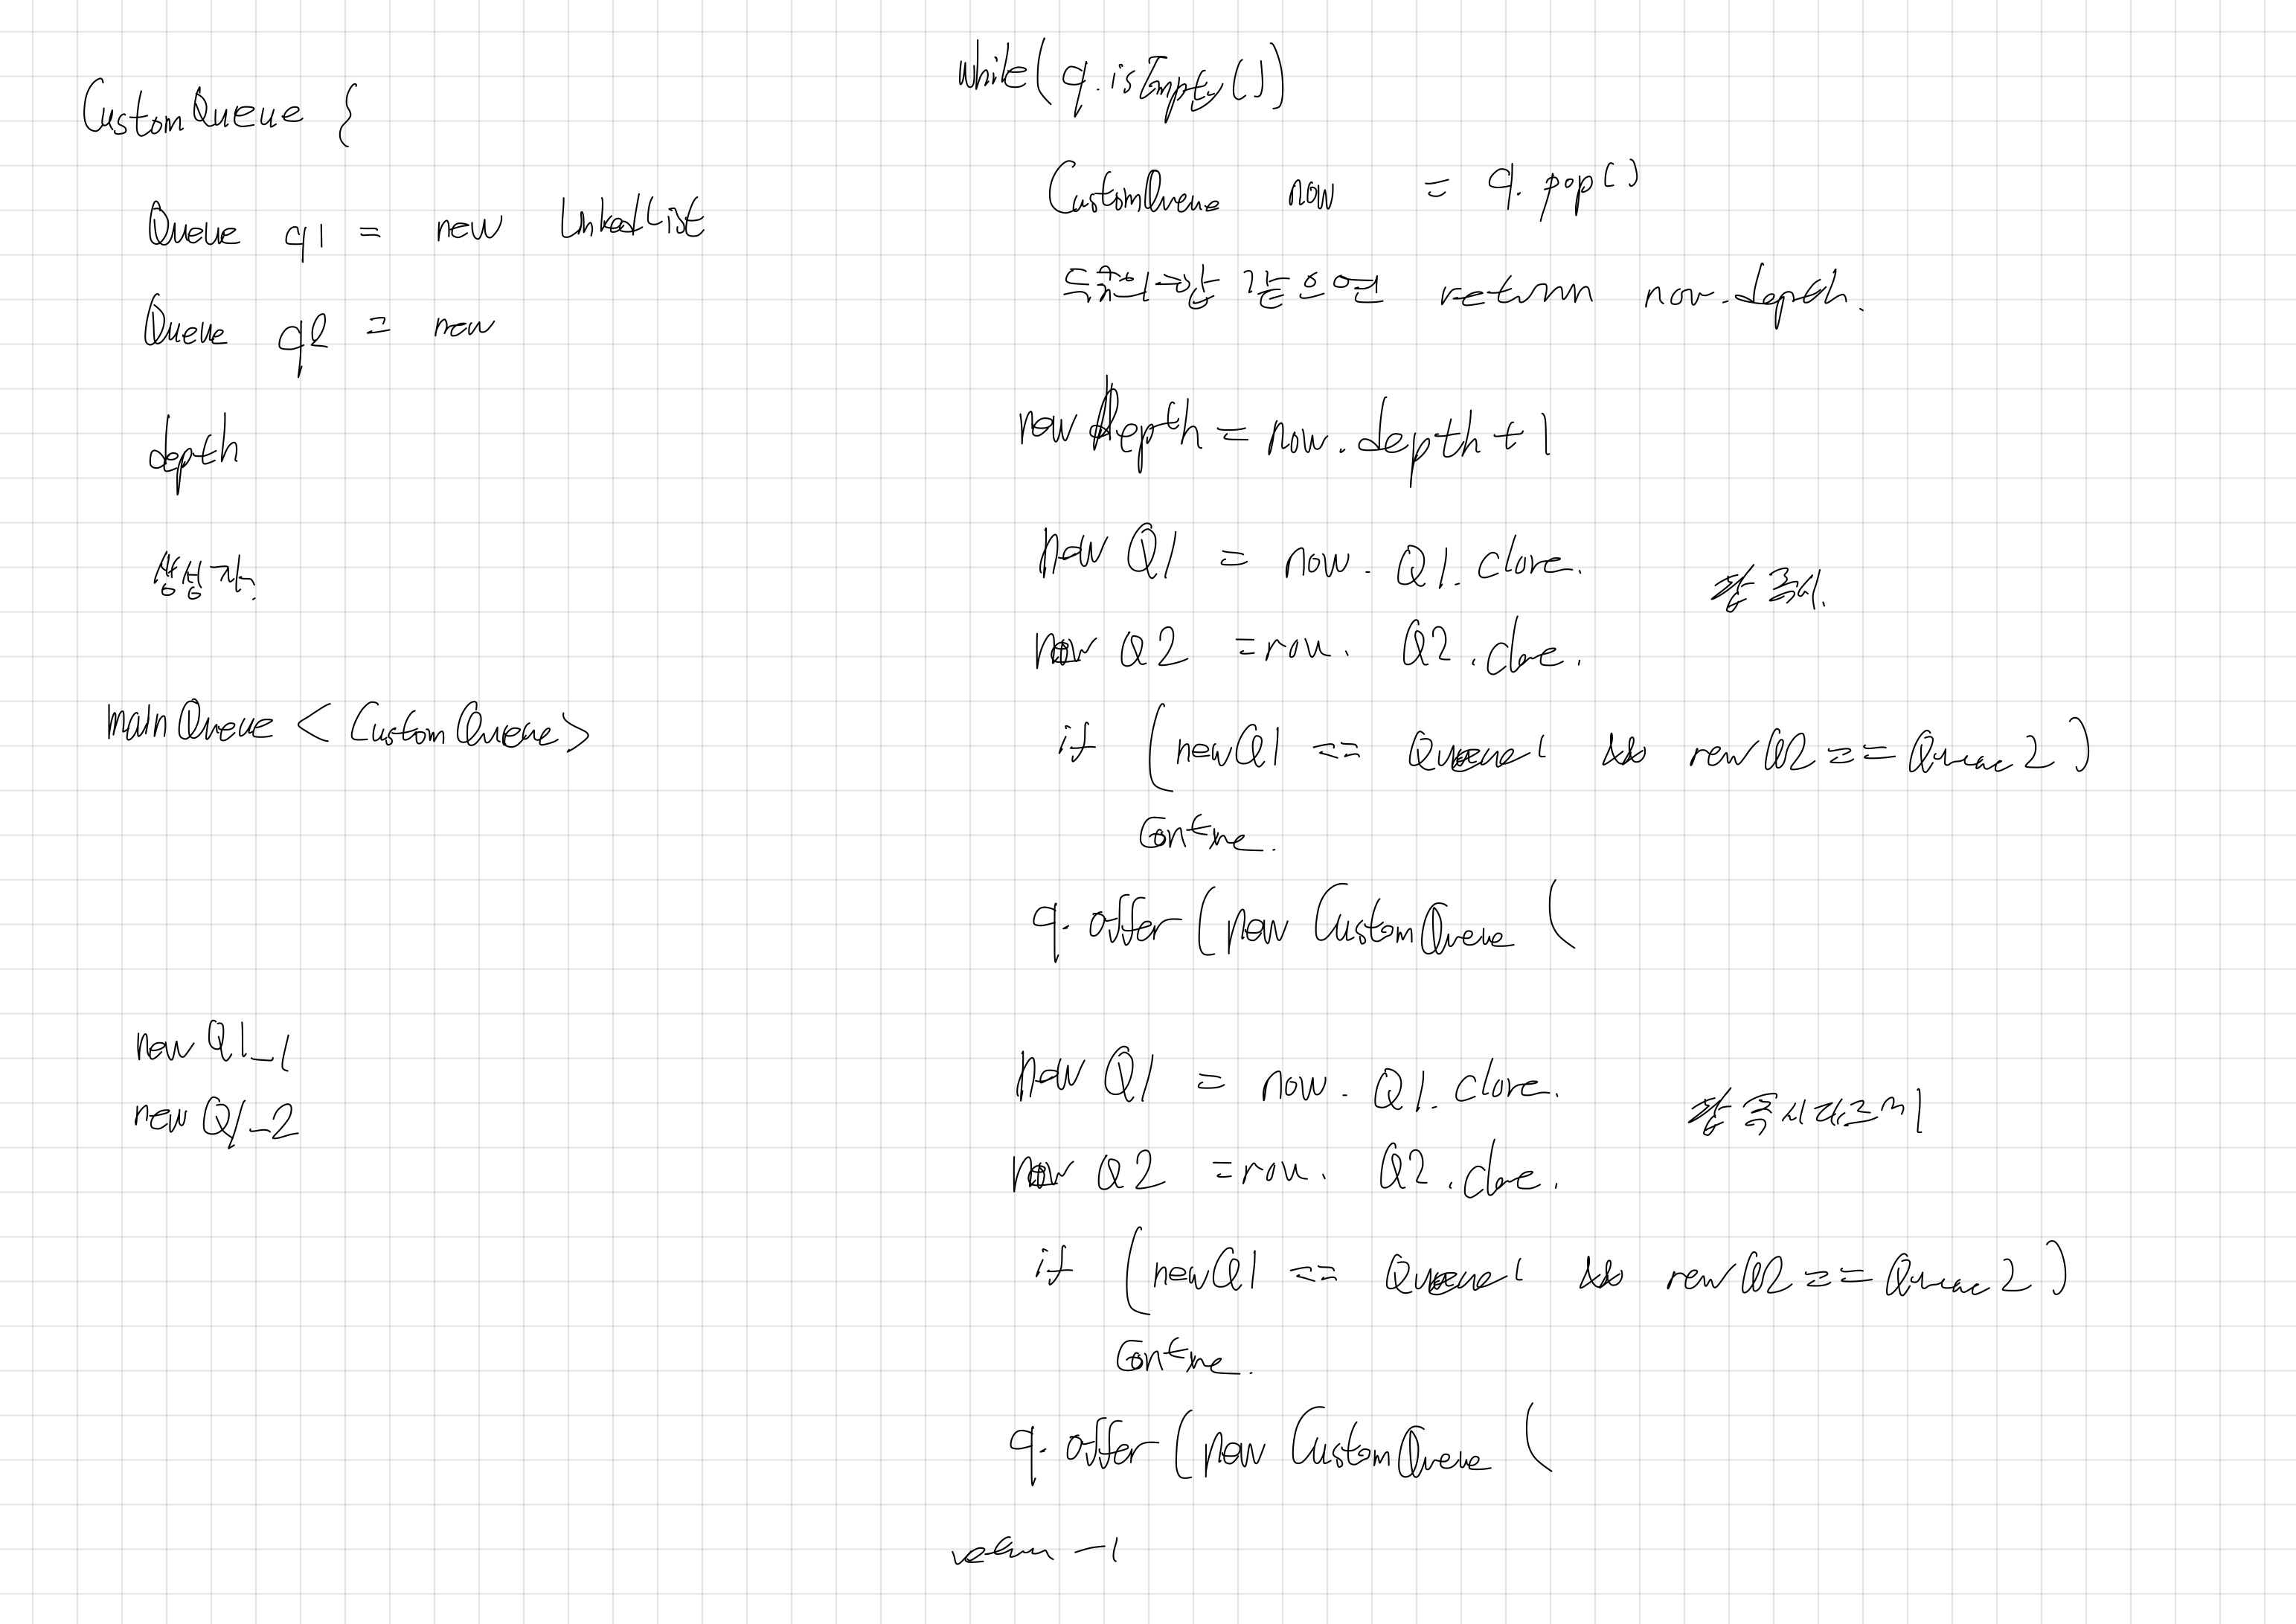 CustomQueue {
Queue q1 = new LinkedList
Queue q2 = new
depth
생성자.
mainQueue < CustomQueue >
new Q1_1
new Q1_2
while( q.isEmpty() )
CustomQueue now = q. pop()
같으면 return now.depth.
new depth = now.depth + 1
new Q1 = now. Q1. clone.
new Q2 = now. Q2. clone.
if ( newQ1 == Queue1 && newQ2 == Queue2 )
Continue.
q. offer ( new CustomQueue (
new Q1 = now. Q1. clone.
new Q2 = now. Q2. clone.
if ( newQ1 == Queue1 && newQ2 == Queue2 )
Continue.
q. offer ( new CustomQueue (
return -1